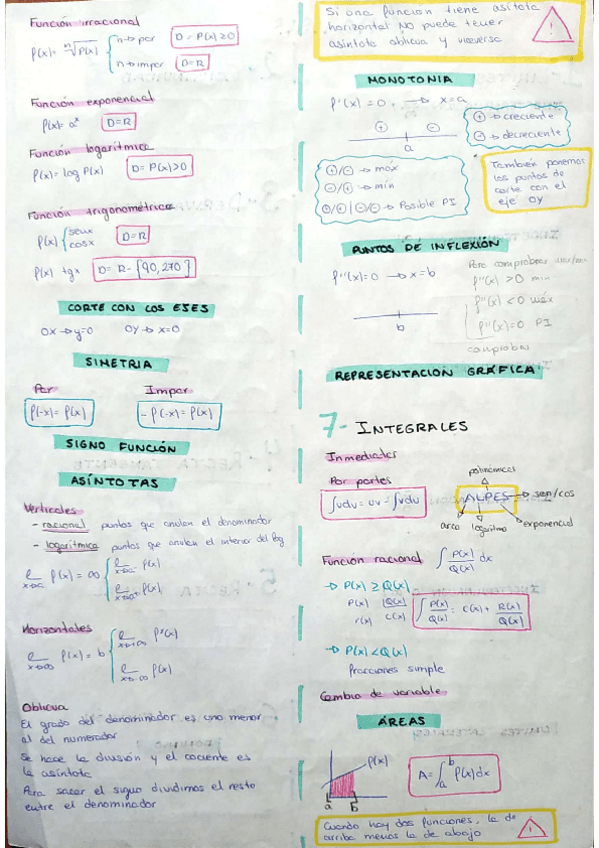 Función irracional
f(x) = ⁿ√P(x) { n→par D = P(x) ≥ 0
n→impar D = R
Función exponencial
f(x) = aˣ D = R
Función logarítmica
f(x) = log P(x) D = P(x) > 0
Función trigonométrica
f(x) { senx
cosx D = R
f(x) tgx D = R - {90, 270}
CORTE CON LOS EJES
OX → y=0 OY → x=0
SIMETRIA
Par Impar
f(-x) = f(x) - f(-x) = f(x)
SIGNO FUNCIÓN
ASÍNTOTAS
Verticales
- racional puntos que anulen el denominador
- logarítmica puntos que anulen el interior del log
f(x) = ∞ { f(x)
f(x)
Horizontales
x→∞ f(x) = b { x→+∞ f(x)
x→-∞ f(x)
Oblicua
El grado del denominador es uno menor
al del numerador
Se hace la división y el cociente es
la asíntota
Para sacar el signo dividimos el resto
entre el denominador
Si una función tiene asítota
horizontal NO puede tener
asíntota oblicua y viceversa
MONOTONIA
f'(x) = 0, → x = a
+ - a
+ → creciente
- → decreciente
+/- → máx
-/+ → mín
+/+ | -/- → Posible PI
También ponemos
los puntos de
corte con el
eje OY
PUNTOS DE INFLEXIÓN
f''(x) = 0 → x = b
b
Para comprobar
f''(x) > 0 min
f''(x) < 0 máx
f''(x) = 0 PI
comprobar
REPRESENTACION GRÁFICA
7- INTEGRALES
Inmediatas
Por partes
∫udv = uv - ∫vdu
polinómicas
ALPES → sen/cos
arco logaritmo exponencial
Función racional ∫ P(x)/Q(x) dx
→ P(x) ≥ Q(x)
P(x) |Q(x)
r(x) C(x)
∫ P(x)/Q(x) = C(x) + R(x)/Q(x)
→ P(x) < Q(x)
Fracciones simple
Cambio de variable
ÁREAS
f(x)
a b
A = ∫ₐᵇ f(x)dx
Cuando hay dos funciones, la de
arriba menos la de abajo